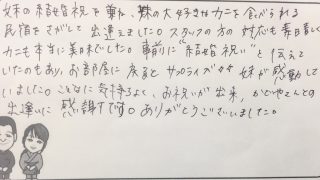 妹の結婚祝で兼ね、妹の大好きなカニを食べられる
民宿をさがして出逢えました。スタッフの方の対応も素晴しく
カニも本当に美味でした。事前に"結婚祝い"と伝えて
いたのもあり、お部屋に戻るとサプライズが 妹が感動して
いました。ことなに気持ちよく、お祝いが出来、かどやさんとの
出逢いに感謝です。ありがとうございました。